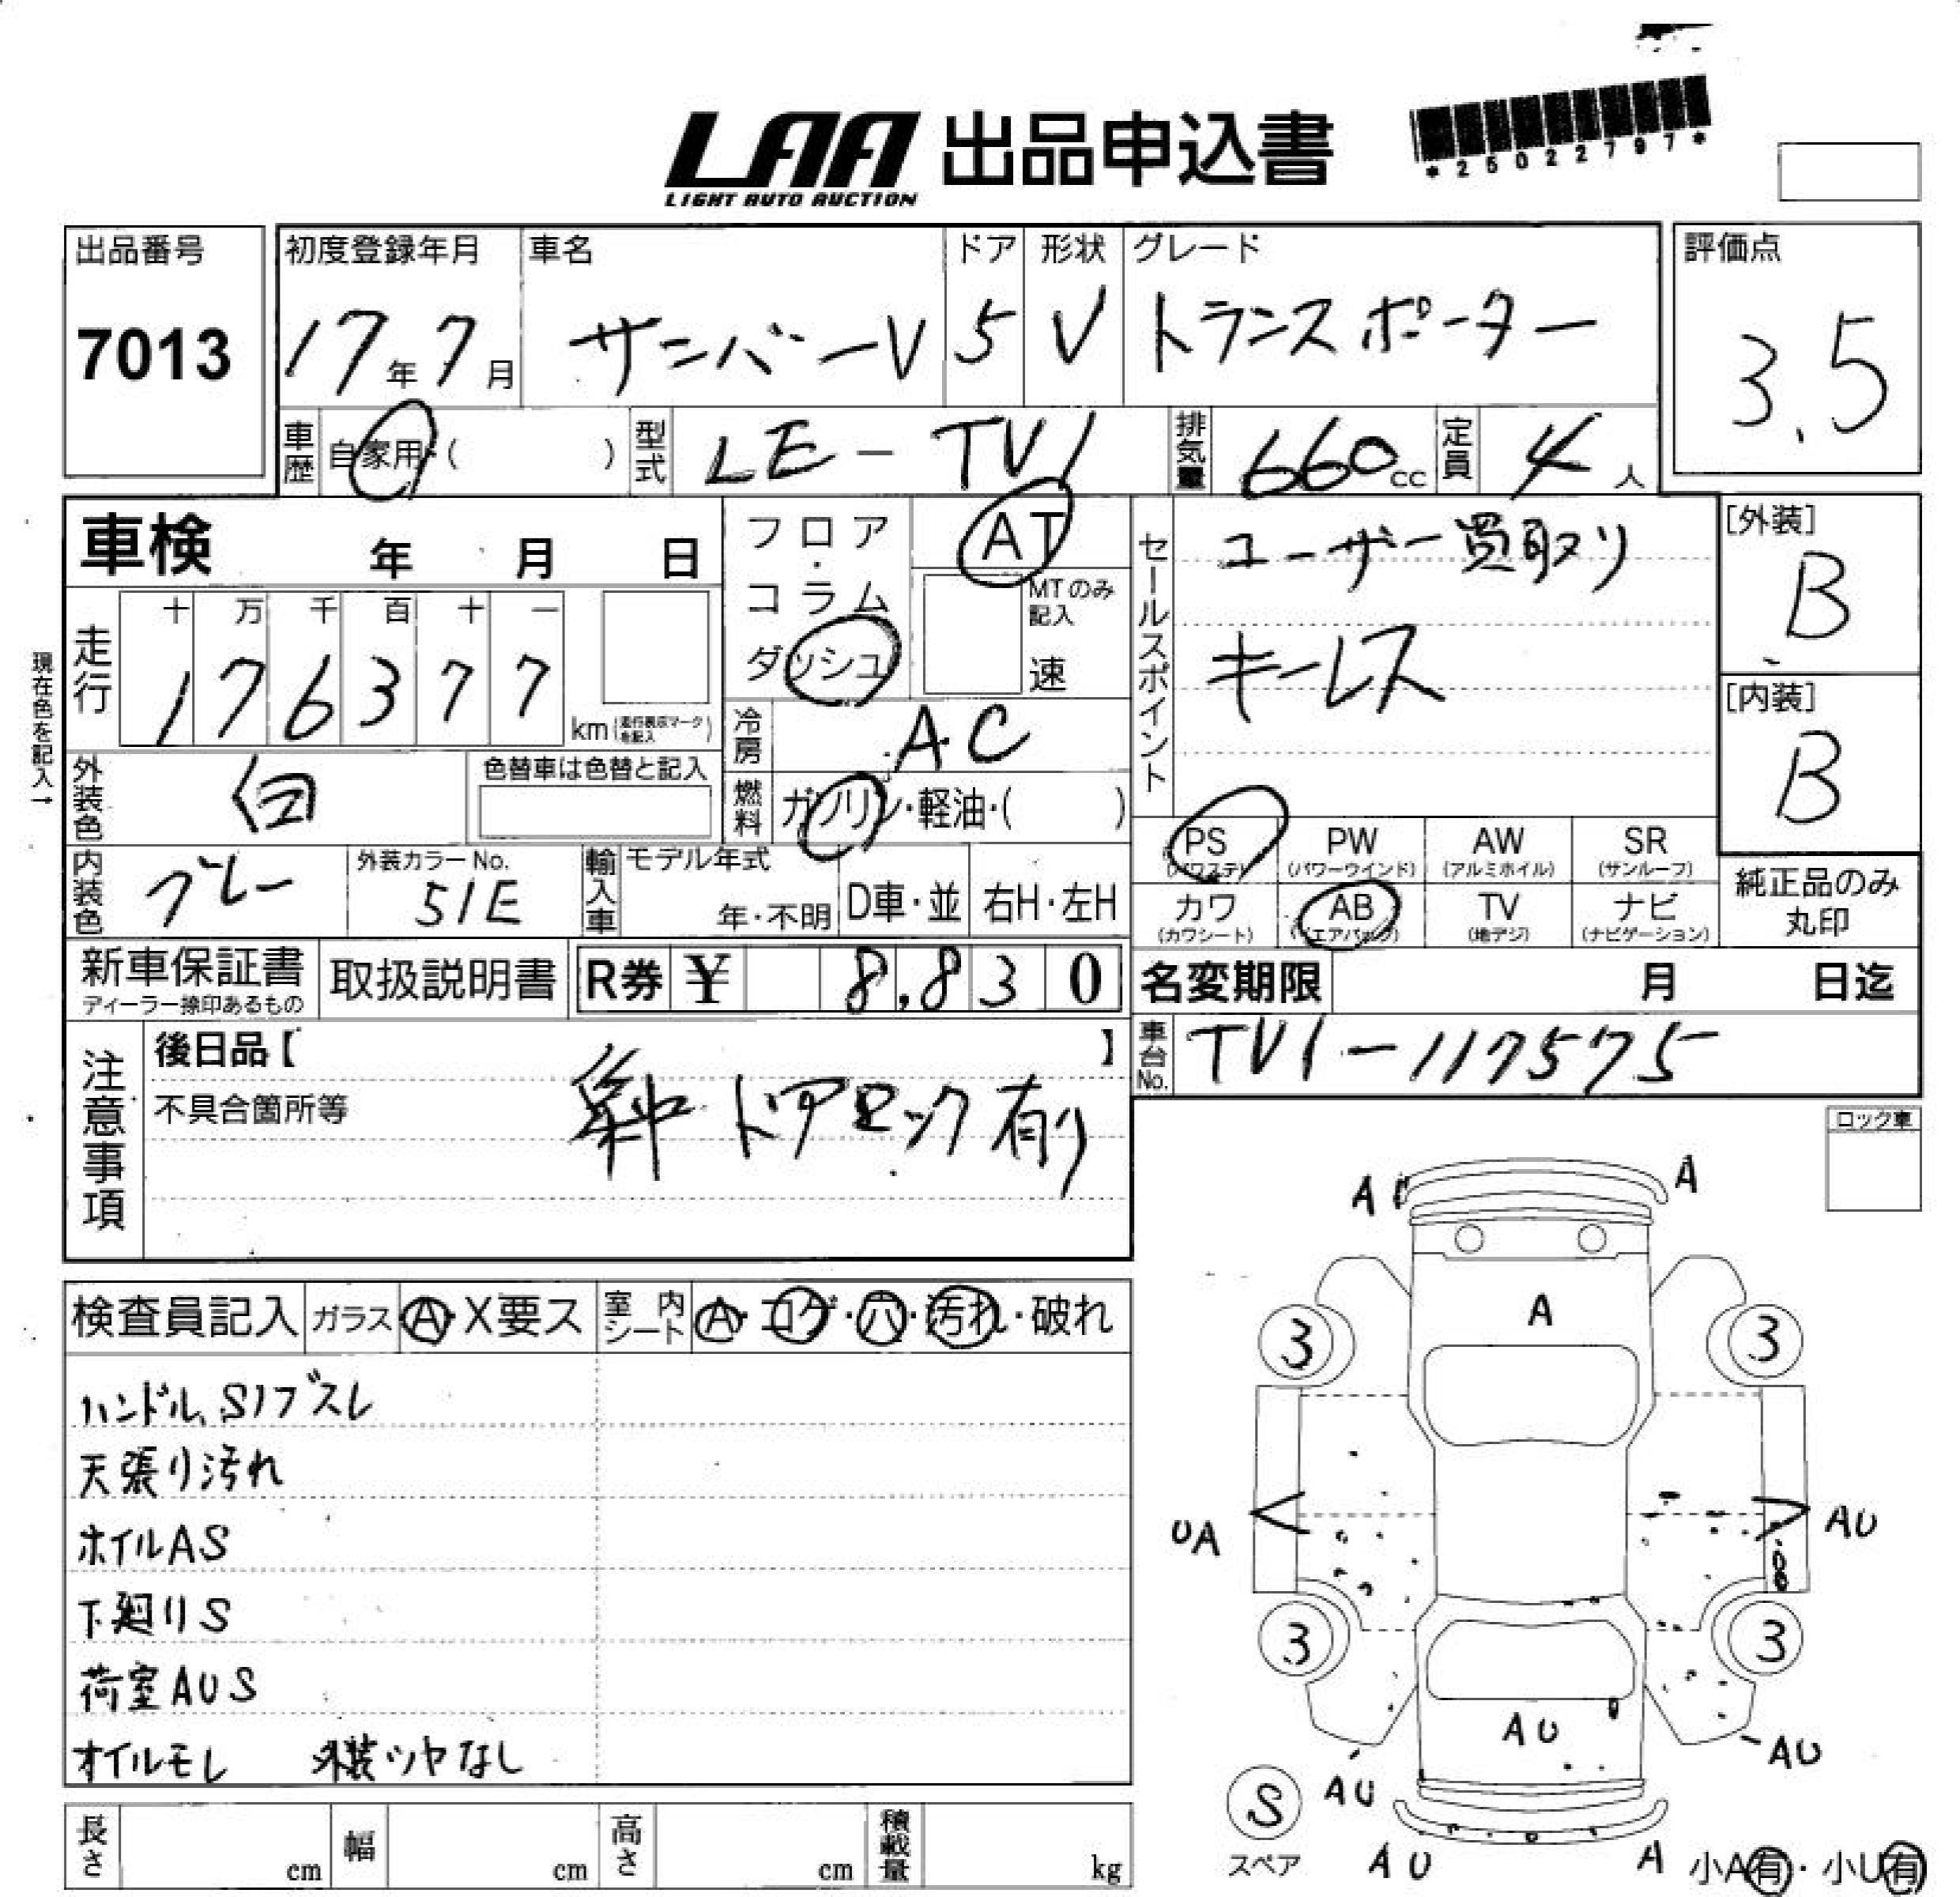 LAA 出品申込書
LIGHT AUTO AUCTION
*25022797*
出品番号
7013
初度登録年月
17年7月
車名
サンバーV
ドア
5
形状
V
グレード
トランスポーター
評価点
3.5
車歴 自家用・( )
型式 LE-TV1
排気量 660cc
定員 4人
車検 年 月 日
フロア・コラム
ダッシュ
AT
MTのみ記入
速
セールスポイント
ユーザー買取り
キーレス
[外装]
B
[内装]
B
現在色を記入→
走行
十 万 千 百 十 一
1 7 6 3 7 7
km(走行表示マークを記入)
冷房 AC
燃料 ガソリン・軽油・( )
外装色 白
色替車は色替と記入
内装色 グレー
外装カラーNo.
51E
輸入車 モデル年式
年・不明
D車・並
右H・左H
PS
(パワステ)
PW
(パワーウインド)
AW
(アルミホイル)
SR
(サンルーフ)
カワ
(カワシート)
AB
(エアバック)
TV
(地デジ)
ナビ
(ナビゲーション)
純正品のみ
丸印
新車保証書
ディーラー捺印あるもの
取扱説明書
R券 ¥ 8,830
名変期限 月 日迄
車台No. TV1-117575
注意事項
後日品【 】
不具合箇所等
ドアロック有り
ロック車
検査員記入
ガラス A・X要ス
室内シート A・コゲ・穴・汚れ・破れ
天張り汚れ
ホイルAS
下廻りS
荷室AUS
オイルモレ 外装ツヤなし
長さ cm
幅 cm
高さ cm
積載量 kg
A A
A
3 3
UA AU
3 3
AU
AU AU
S
スペア
AU A
小A有・小U有